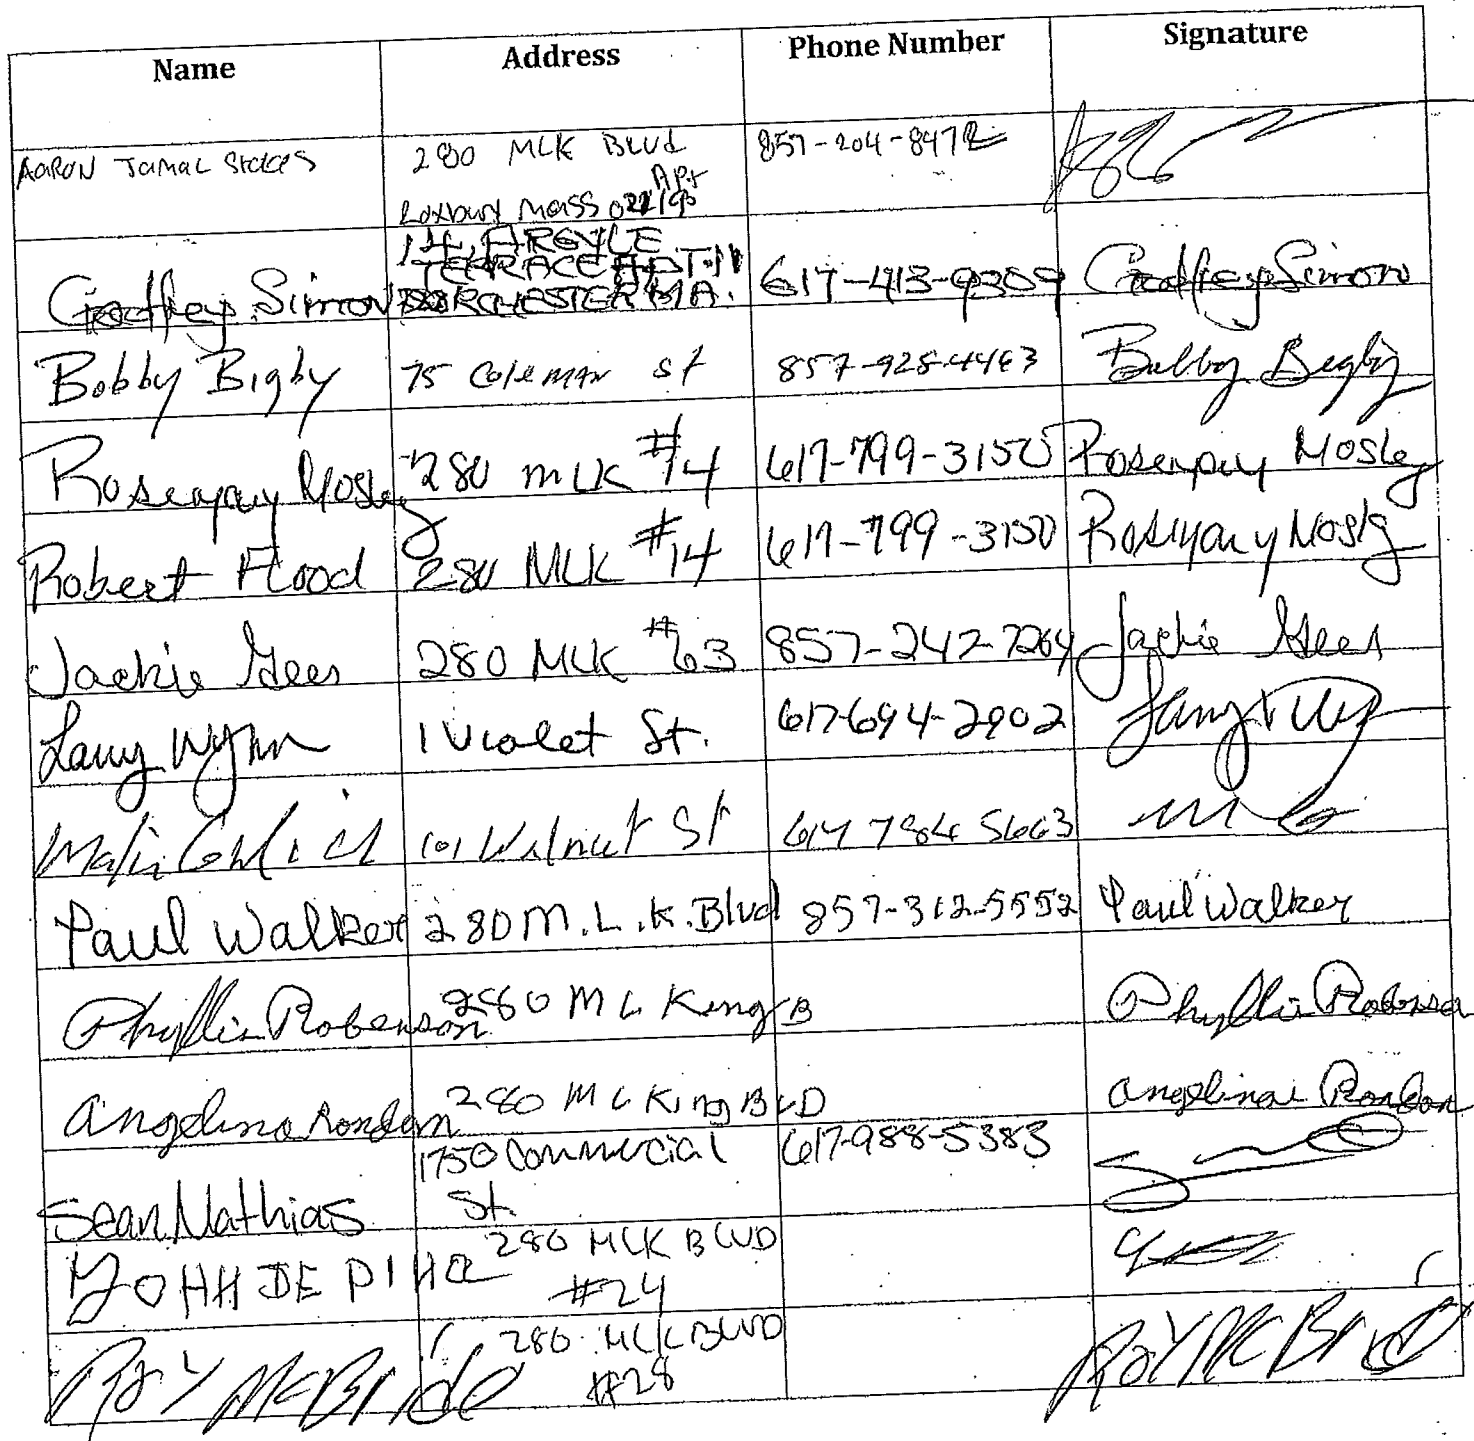 Name Address Phone Number Signature
AARON JAMAL 280 MLK BLVD 857-204-8472
Apt
Roxbury Mass
14, ARGYLE
TERRACE APT. 11
Godfrey Simon DORCHESTER MA. 617-413-9309 Godfrey Simon
Bobby Bigby 75 Coleman St 857-928-4463 Bobby Bigby
Rosemary Mosley 280 MLK #14 617-799-3150 Rosemary Mosley
Robert Flood 280 MLK #14 617-799-3150 Rosemary Mosley
Jackie Gees 280 MLK #63 857-242-7264 Jackie Gees
Larry Wynn 1 Violet St. 617-694-2902
101 Walnut St 617 784 5663
Paul Walker 280 M.L.K. Blvd 857-312-5552 Paul Walker
Phyllis Roberson 280 ML King B Phyllis Roberson
Angelina Rondon 280 ML King BLD Angelina Rondon
1750 Commercial 617-988-5383
Sean Mathias St.
280 MLK BLVD
#24
280 MLK BLVD
Roy McBride #28 Roy McBride